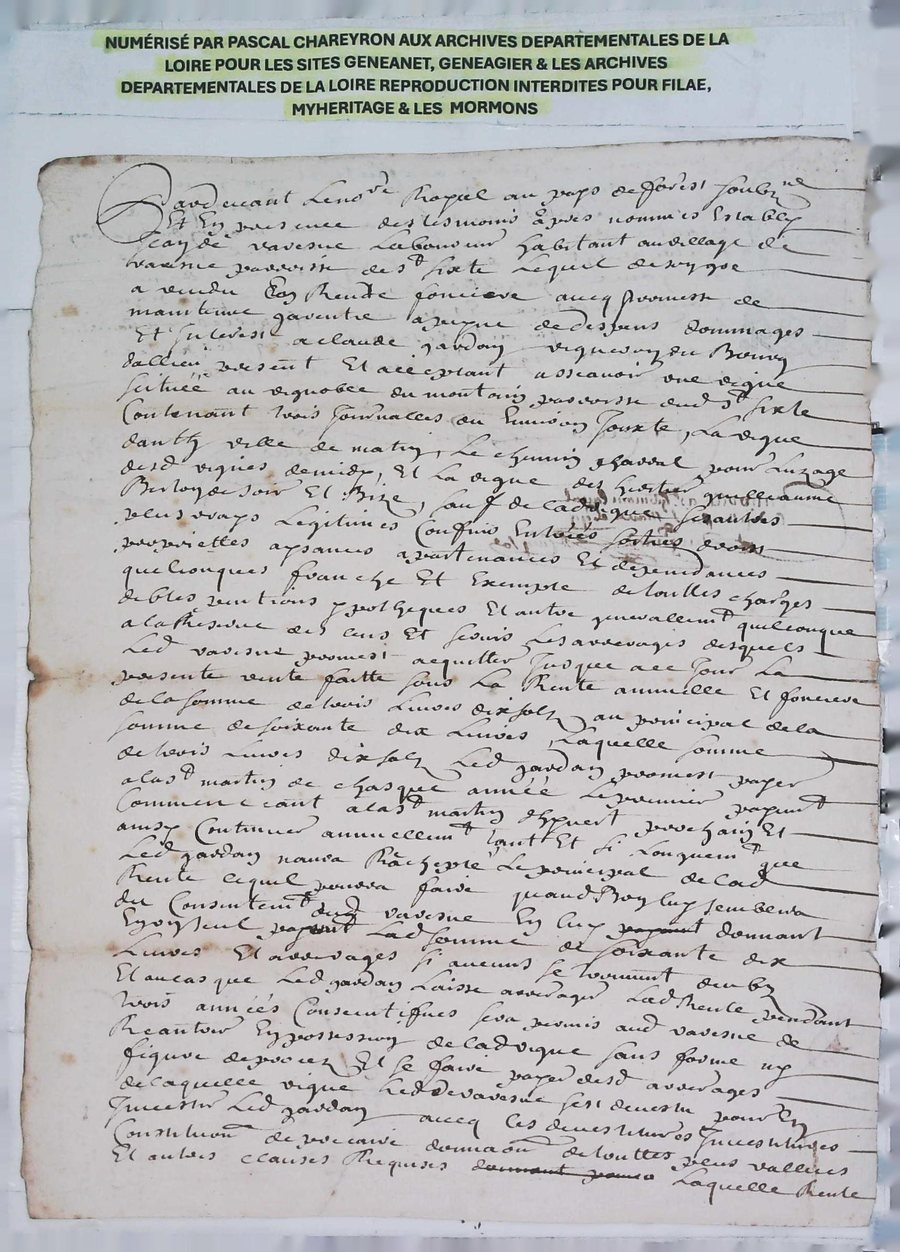 NUMÉRISÉ PAR PASCAL CHAREYRON AUX ARCHIVES DEPARTEMENTALES DE LA
LOIRE POUR LES SITES GENEANET, GENEAGIER & LES ARCHIVES
DEPARTEMENTALES DE LA LOIRE REPRODUCTION INTERDITES POUR FILAE,
MYHERITAGE & LES MORMONS
Pardevant le no.re Royal au pays de forest soubz.ne
Et En presence des tesmoins apres nommés Estably
varesne Laboureur habitant au village de
varesne parroisse de s.t sixte Lequel de son gre
a vendu En Rente fonciere avecq promesse de
maintenue garentie a peyne de despens dommages
Et Interest a claude gardon vigneron du Bourg
dallieu present Et acceptant asscavoir une vigne
scituée au vignoble du montain parroisse dud s.t sixte
Contenant trois Journalles ou Environ Jouxte, La vigne
ville de matin, Le chemin pour Luzage
desd vignes de midy, Et La vigne des guilleaume
de soir Et Bize, sauf de lad vigne ses autres
plus vrays Legitimes Confins Entrées sorties droits
proprietes apartenances Et dependances
quelconques franche Et Exempte de touttes charges
debtes ypotheques Et autre generallem.t quelconque
a la Reserve des cens Et servis Les arrerages desquels
Led varesne promest acquitter Jusque a ce Jour La
presente vente faitte sous La Rente annuelle Et fonciere
de la somme de trois Livres dix solz au principal de la
somme de soixante dix Livres, Laquelle somme
de trois Livres dix solz Led gardon promest payer
a la s.t martin de chasque année Le premier payem.t
Commenceant a la s.t martin dhyvert prochain Et
ainsy Continuer annuellem.t tant Et si Longuem.t que
Led gardon naura Racheptè Le principal de lad
Rente lequel pourra faire quand Bon luy semblera
du Consentem.t dud varesne En luy donnant
Lad somme de soixante dix
Livres Et arrerages si aucuns se treuvent
Et au cas que Led gardon Laisse arrerager Lad Rente pendant
trois années Consecutifves sera permis aud varesne de
Reantrer En possession de lad vigne sans forme ny
figure de proces Et se faire payer desd arrerages
de laquelle vigne Led varesne sest devestu pour En
Investir Led gardon avecq les devestitures Investitures
Constitution de precaire donnaon de touttes plus vallues
Et autres clauses Requises Laquelle Rente